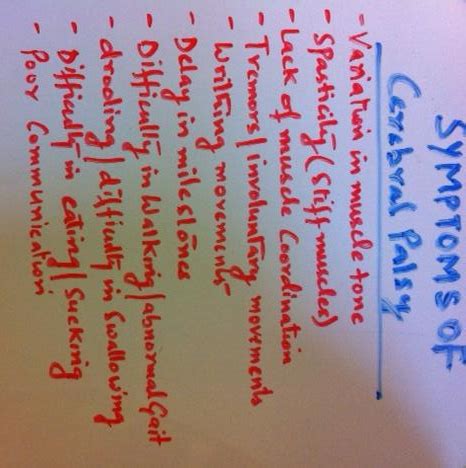 SYMPTOMS OF
Cerebral Palsy
- Variation in muscle tone
- Spasticity (stiff muscles)
- Lack of muscle Coordination
- Tremors / involuntary movements
- Writhing movements
- Delay in milestones
- Difficulty in Walking / abnormal Gait
- drooling / difficulty in Swallowing
- Difficulty in eating / Sucking
- Poor Communication